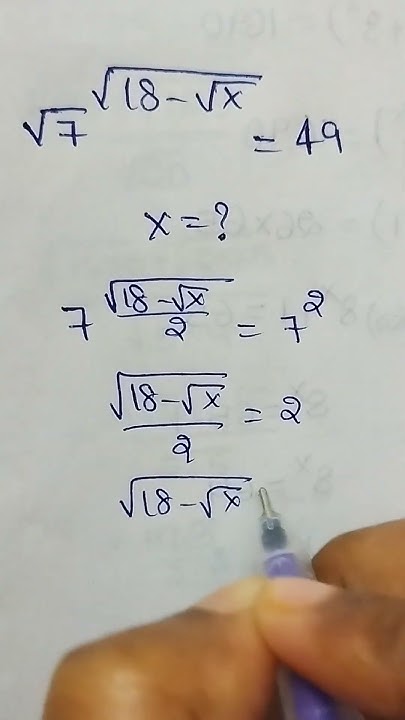 √7^√(18-√x) = 49
x = ?
7^(√(18-√x)/2) = 7^2
√(18-√x)/2 = 2
√(18-√x)